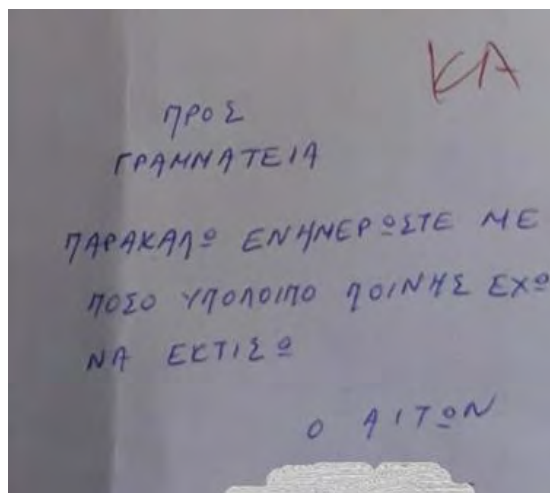 ΚΑ
ΠΡΟΣ
ΓΡΑΜΜΑΤΕΙΑ
ΠΑΡΑΚΑΛΩ ΕΝΗΜΕΡΩΣΤΕ ΜΕ
ΠΟΣΟ ΥΠΟΛΟΙΠΟ ΠΟΙΝΗΣ ΕΧΩ
ΝΑ ΕΚΤΙΣΩ
Ο ΑΙΤΩΝ